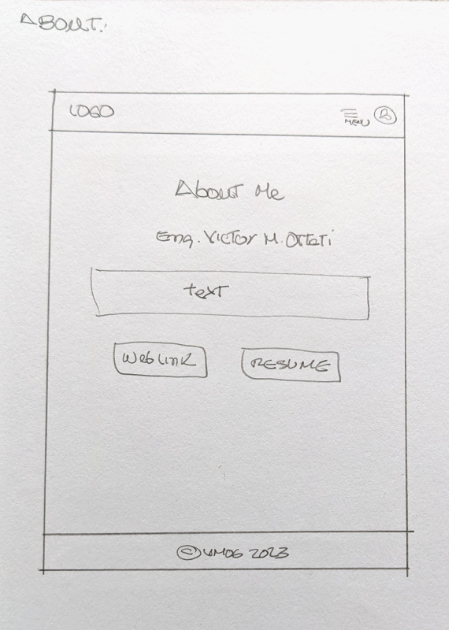 ABOUT:
LOGO
MENU
About Me
Eng. Victor M. Ottati
text
Web Link
RESUME
© VMOG 2023